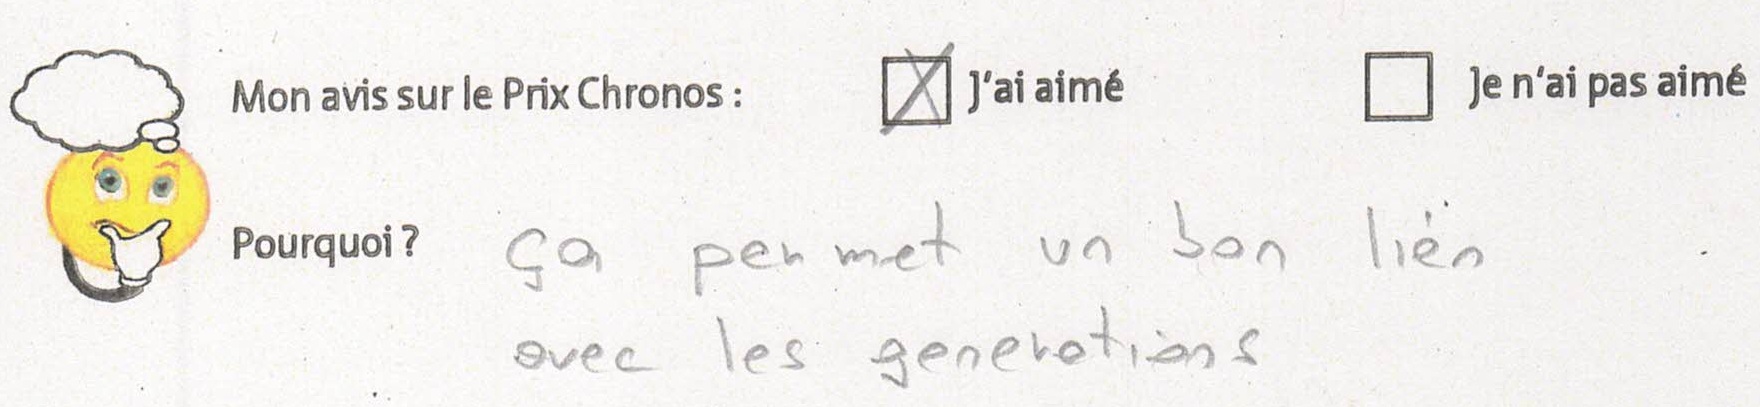 Mon avis sur le Prix Chronos : ☒ J'ai aimé ☐ Je n'ai pas aimé
Pourquoi ? ça permet un bon lien
avec les generations